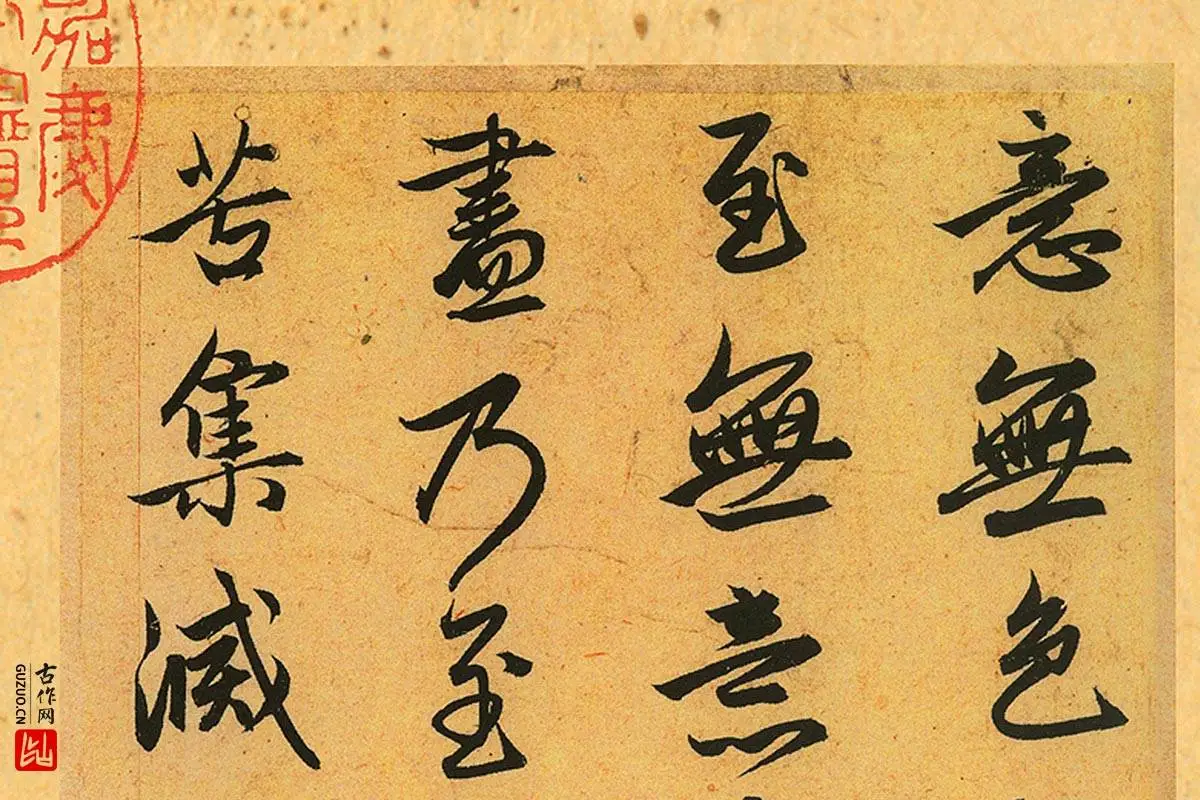 意無色
至無意
盡乃至
苦集滅
嘉慶
古作网
GUZUO.CN